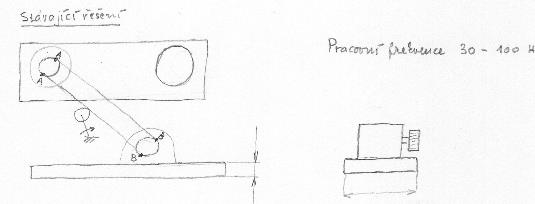 Stávající řešení
Pracovní frekvence 30 - 100 H
A
A
B
B